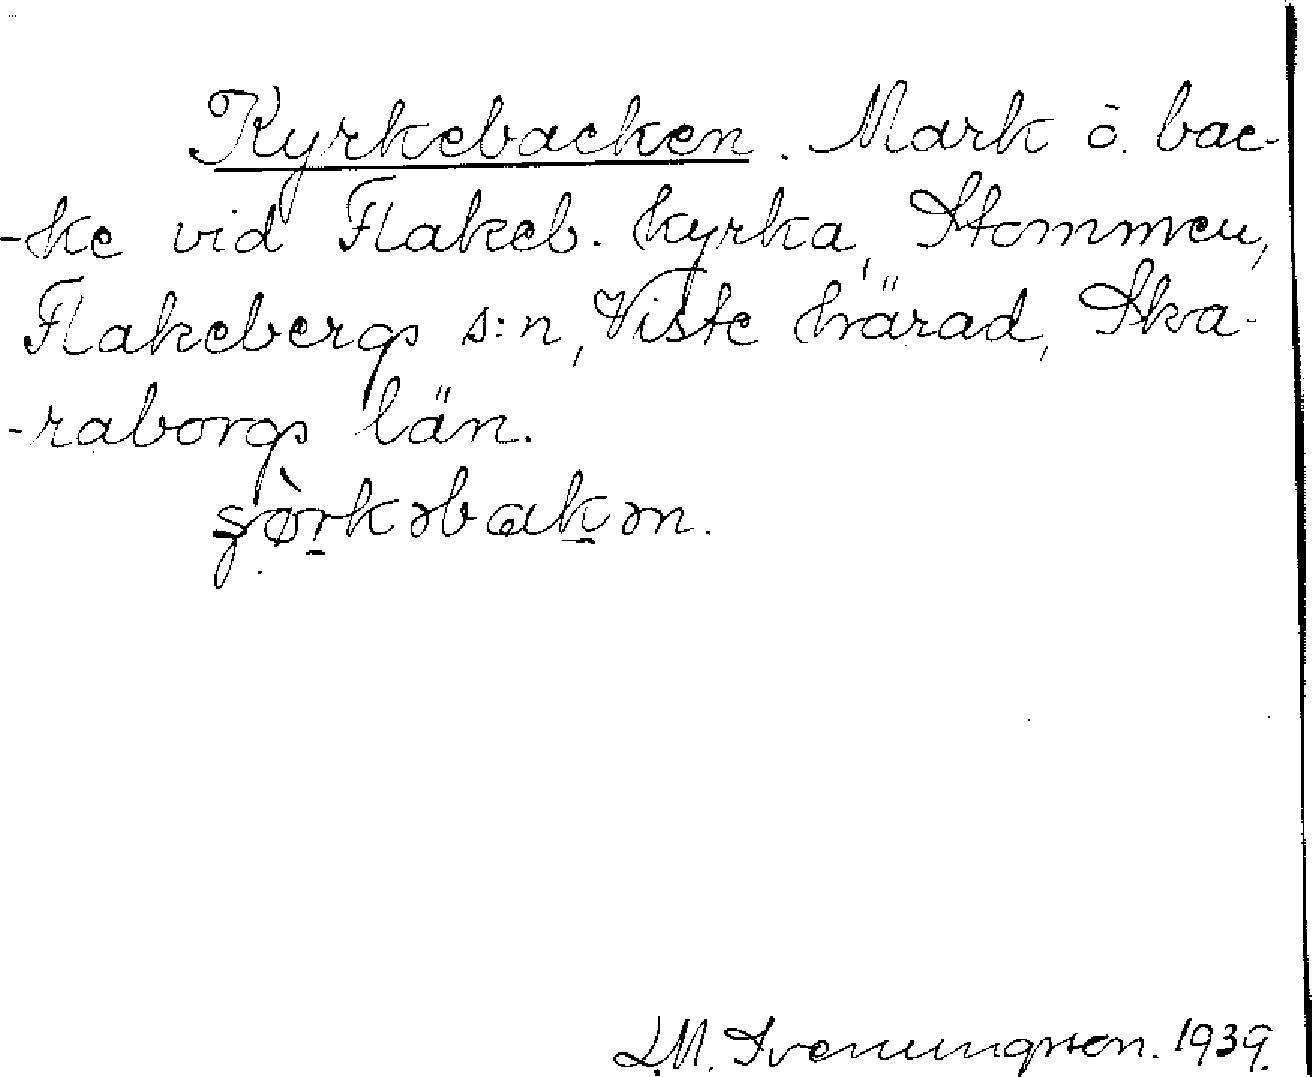 Kyrkebacken. Mark o. bac-
-ke vid Flakeb. kyrka, Stommen,
Flakebergs s:n, Viste härad, Ska-
-raborgs län.
L.M. Svenungsson. 1939.